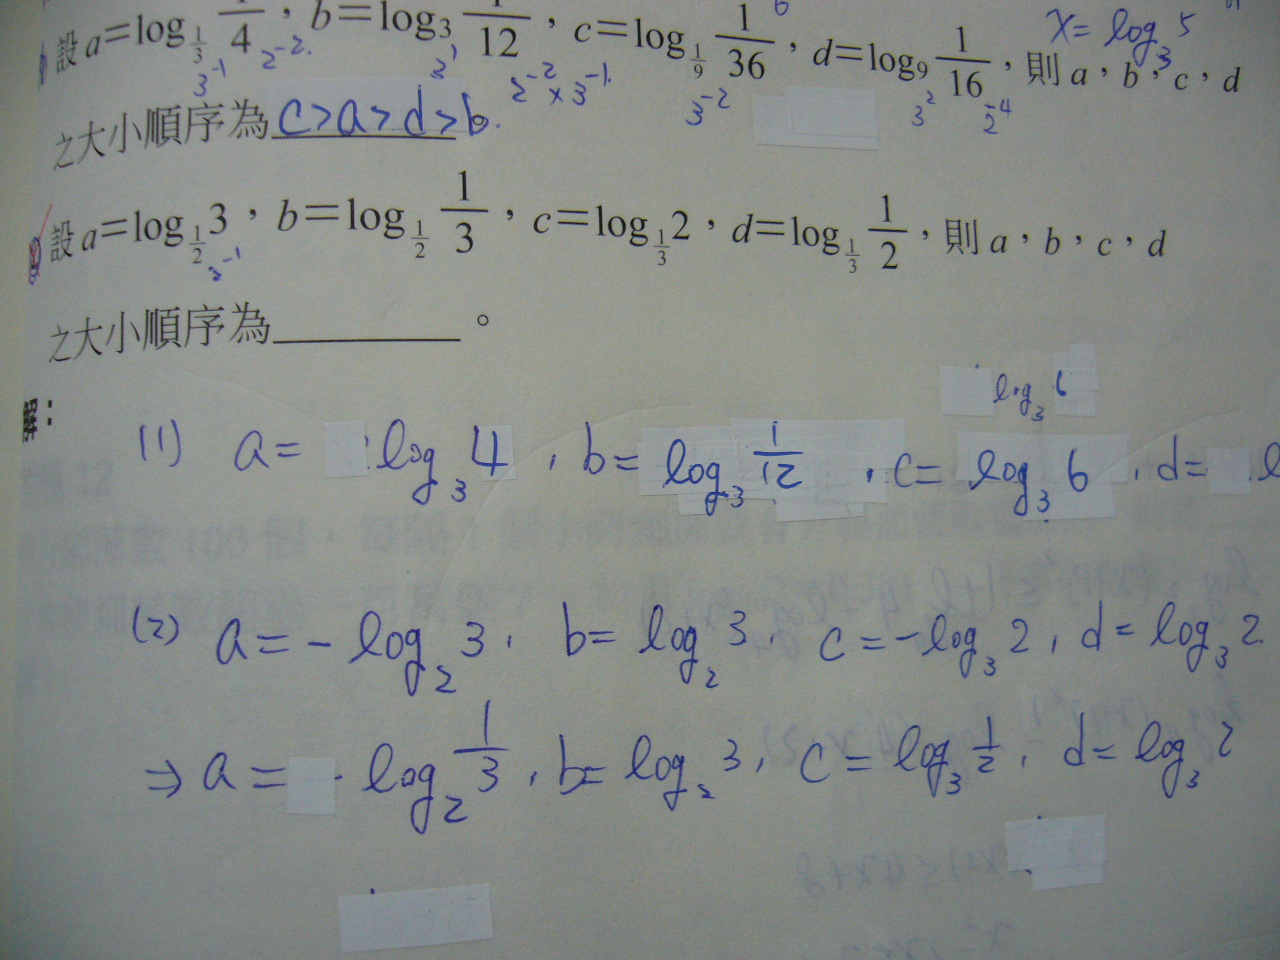 設 a=log_{1/3} 1/4, b=log_3 1/12, c=log_{1/9} 1/36, d=log_9 1/16, 則 a, b, c, d
x= log_3 5
3^{-1} 2^{-2}. 3^1 2^{-2}×3^{-1}. 3^{-2} 3^2 2^{-4}
之大小順序為 c>a>d>b.
設 a=log_{1/2} 3, b=log_{1/2} 1/3, c=log_{1/3} 2, d=log_{1/3} 1/2, 則 a, b, c, d
2^{-1}
之大小順序為________。
解:
log_3 6
(1) a= log_3 4, b= log_3 1/12, c= log_3 6, d=
(2) a=-log_2 3, b= log_2 3, c=-log_3 2, d= log_3 2.
⇒ a= log_2 1/3, b= log_2 3, c= log_3 1/2, d= log_3 2